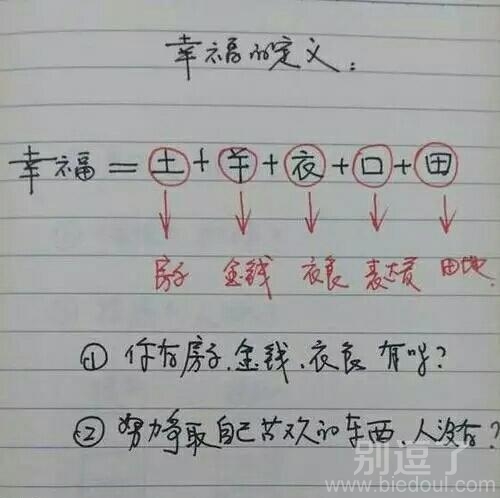 幸福的定义：
幸福=土+羊+衣+口+田
房子 金钱 衣食 表达 田地.
① 你有房子、金钱、衣食 有吗?
② 努力争取自己喜欢的东西、人没有?
别逗了
www.biedoul.com